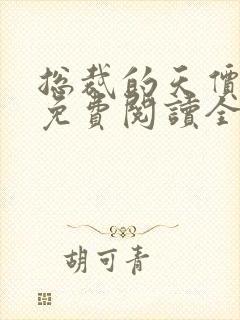 总裁的天價
免費閱讀全
胡可青